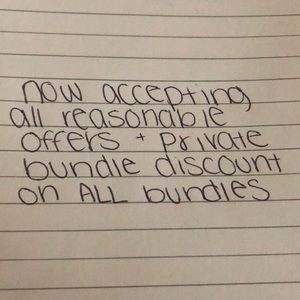 now accepting
all reasonable
offers + private
bundle discount
on ALL bundles